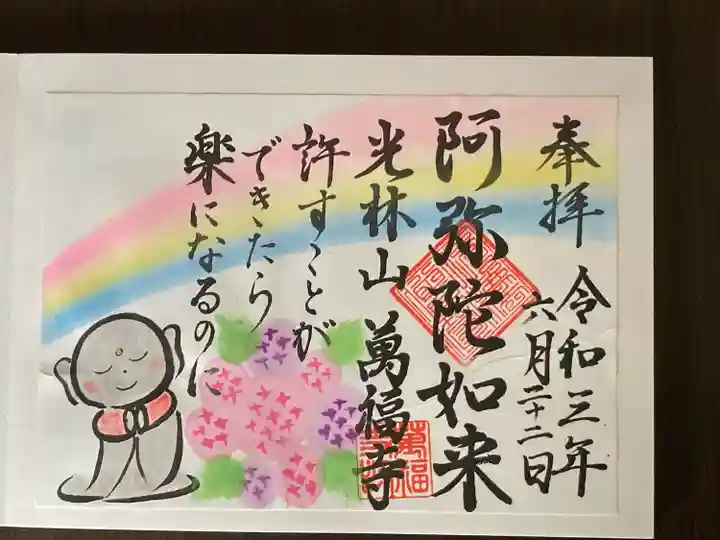 奉拝
令和三年
六月二十二日
阿弥陀如来
光林山 萬福寺
許すことが
できたら
楽になるのに
萬福